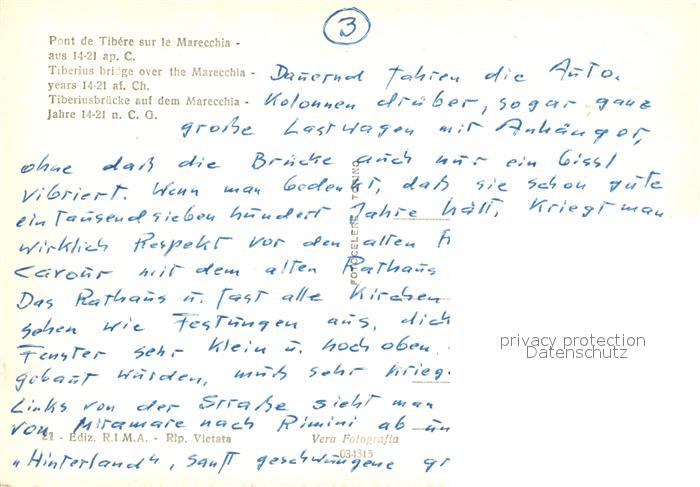 3
Pont de Tibére sur le Marecchia -
aus 14-21 ap. C,
Tiberius bridge over the Marecchia -
years 14-21 af. Ch.
Tiberiusbrücke auf dem Marecchia -
Jahre 14-21 n. C. G.
Dauernd fahren die Auto-
Kolonnen drüber, sogar ganz
große Lastwagen mit Anhänger,
ohne daß die Brücke auch nur ein bissl
vibriert. Wenn man bedenkt, daß sie schon gute
eintausendsiebenhundert Jahre hält, kriegt man
wirklich Respekt vor den alten
Cavour mit dem alten Rathaus
Das Rathaus u. fast alle Kirchen
sehen wie Festungen aus, dick
Fenster sehr klein u. hoch oben.
gebaut wurden, muß sehr krieg
Links von der Straße sieht man
von Miramare nach Rimini ab un
"Hinterland", sanft geschwungene gr
21 - Ediz. R.I.M.A. - Rip. Vietata
Vera Fotografia
034315
FOTOCELERE TORINO
privacy protection
Datenschutz